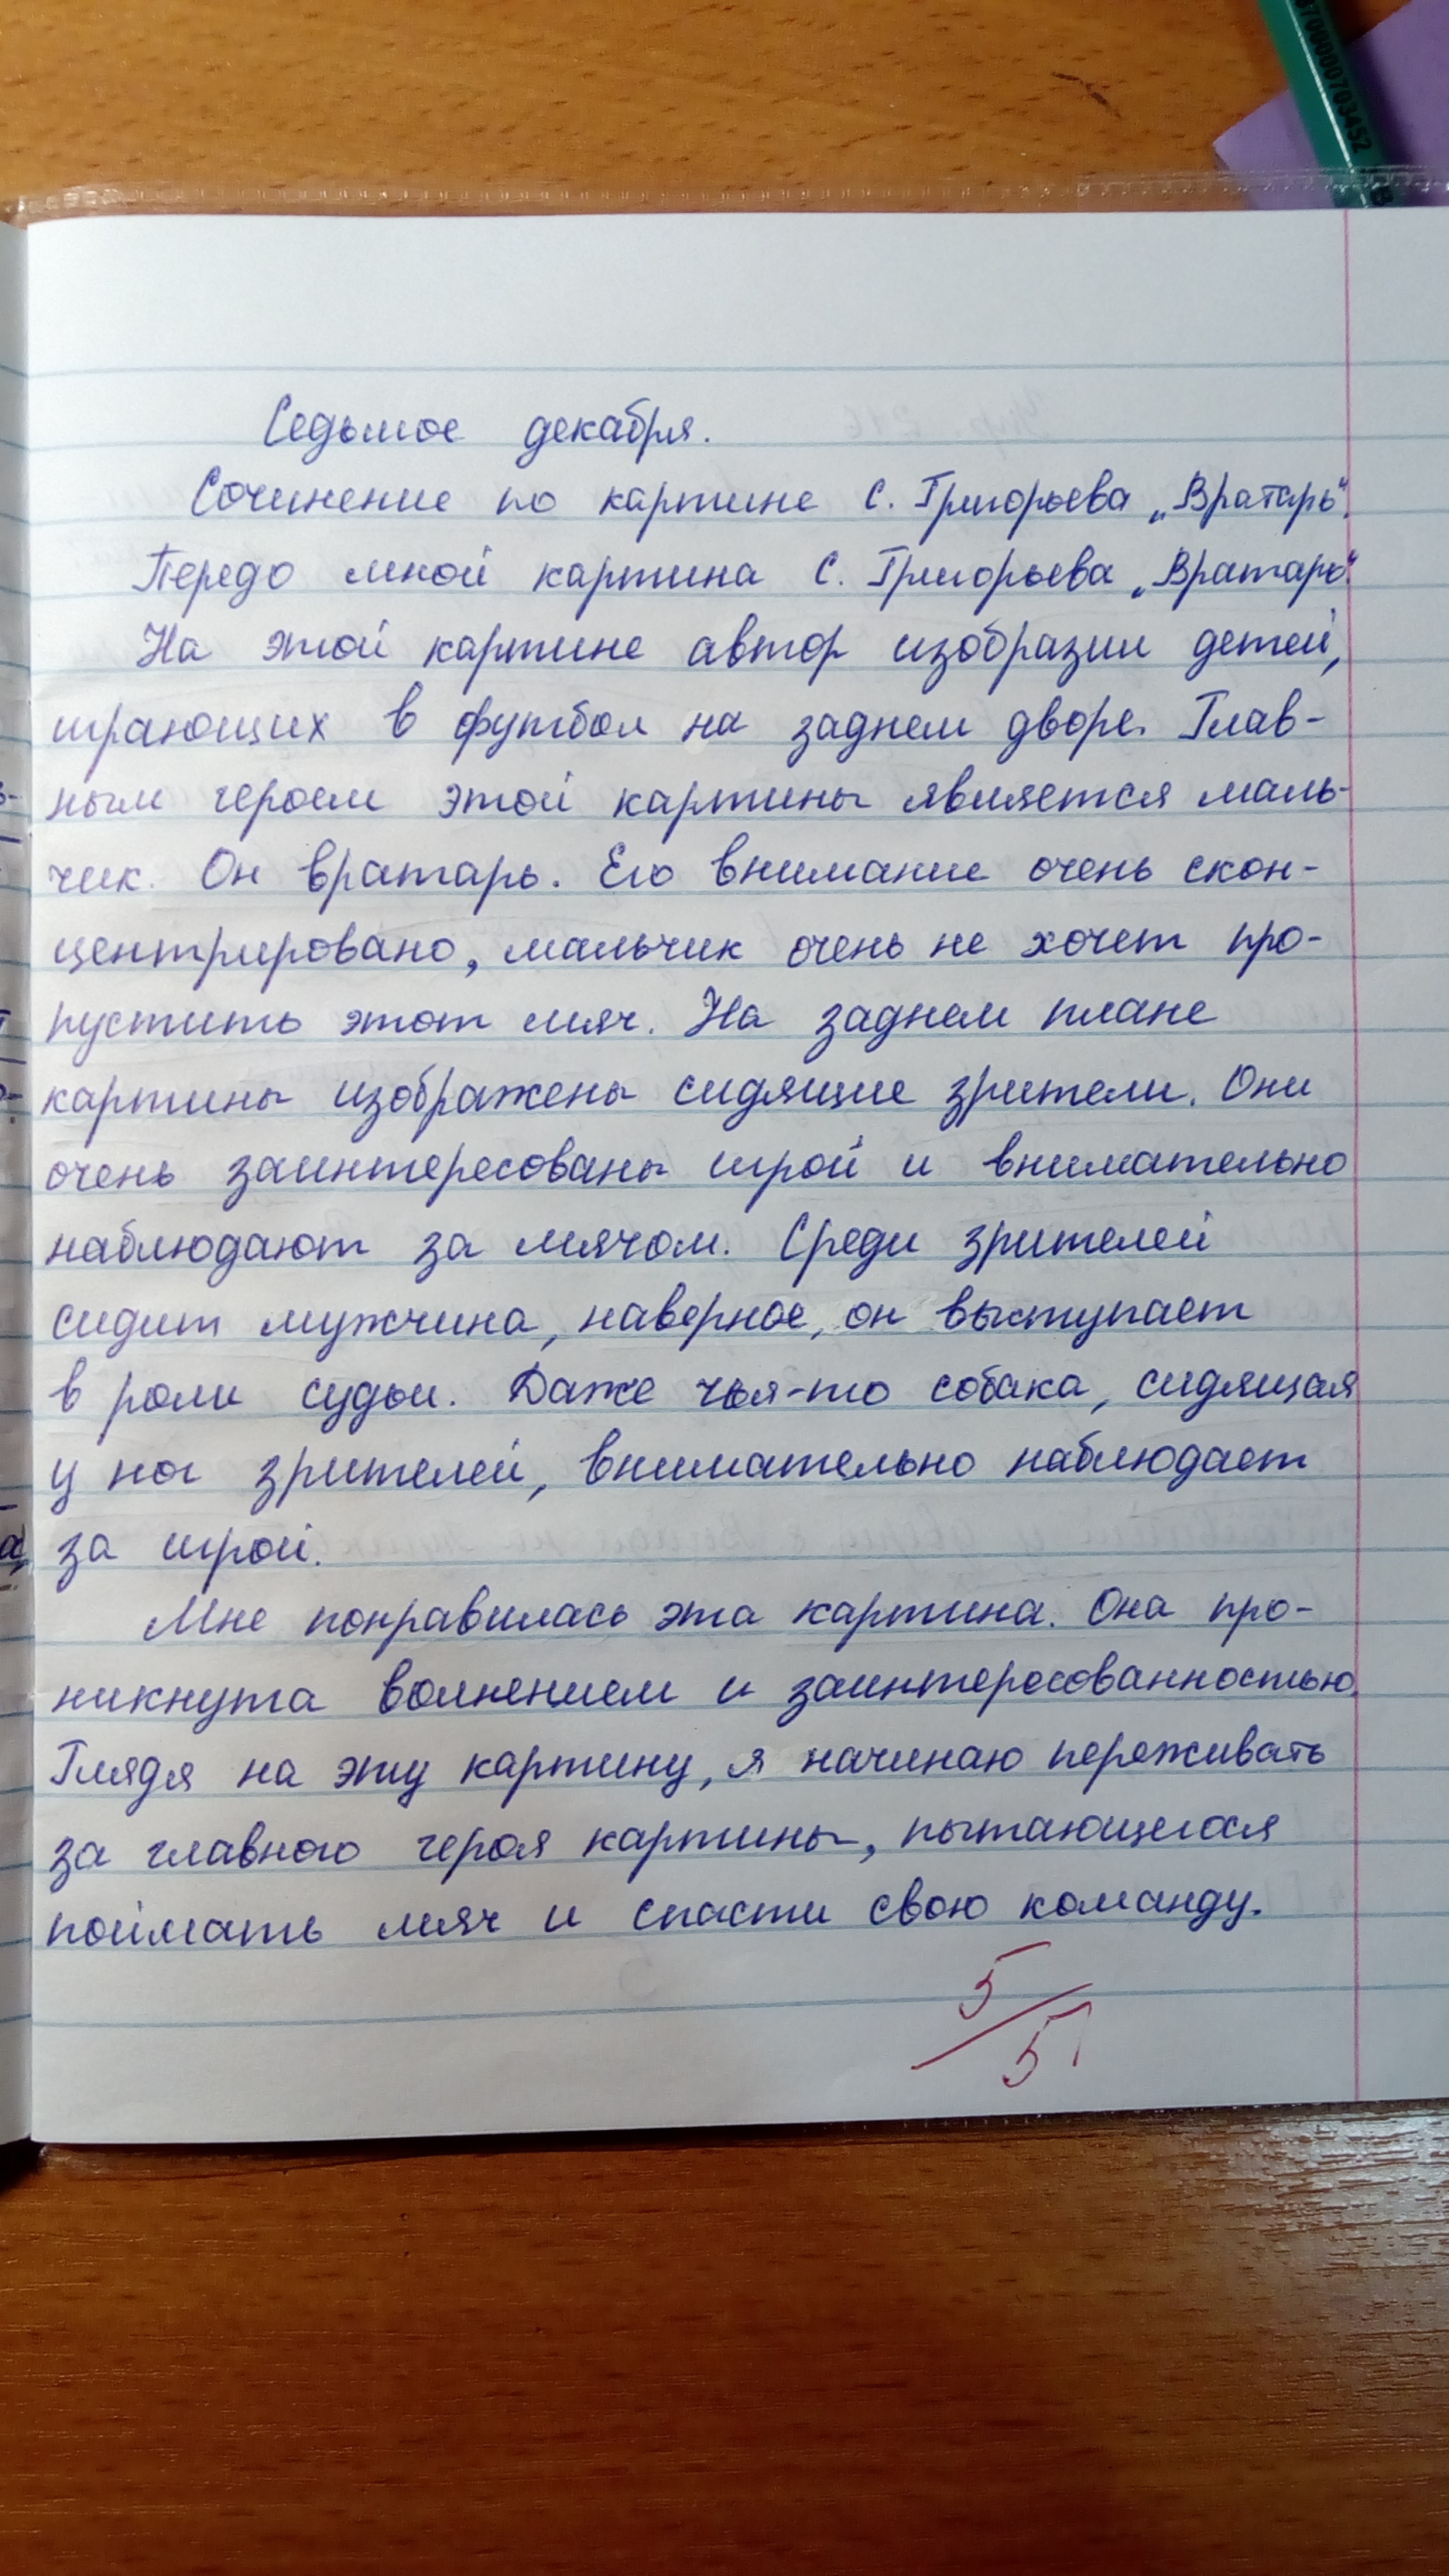 3700000703452
Седьмое декабря.
Сочинение по картине С. Григорьева „Вратарь".
Передо мной картина С. Григорьева „Вратарь".
На этой картине автор изобразил детей,
играющих в футбол на заднем дворе. Глав-
ным героем этой картины является маль-
чик. Он вратарь. Его внимание очень скон-
центрировано, мальчик очень не хочет про-
пустить этот мяч. На заднем плане
картины изображены сидящие зрители. Они
очень заинтересованы игрой и внимательно
наблюдают за мячом. Среди зрителей
сидит мужчина, наверное, он выступает
в роли судьи. Даже чья-то собака, сидящая
у ног зрителей, внимательно наблюдает
за игрой.
Мне понравилась эта картина. Она про-
никнута волнением и заинтересованностью.
Глядя на эту картину, я начинаю переживать
за главного героя картины, пытающегося
поймать мяч и спасти свою команду.
5/5